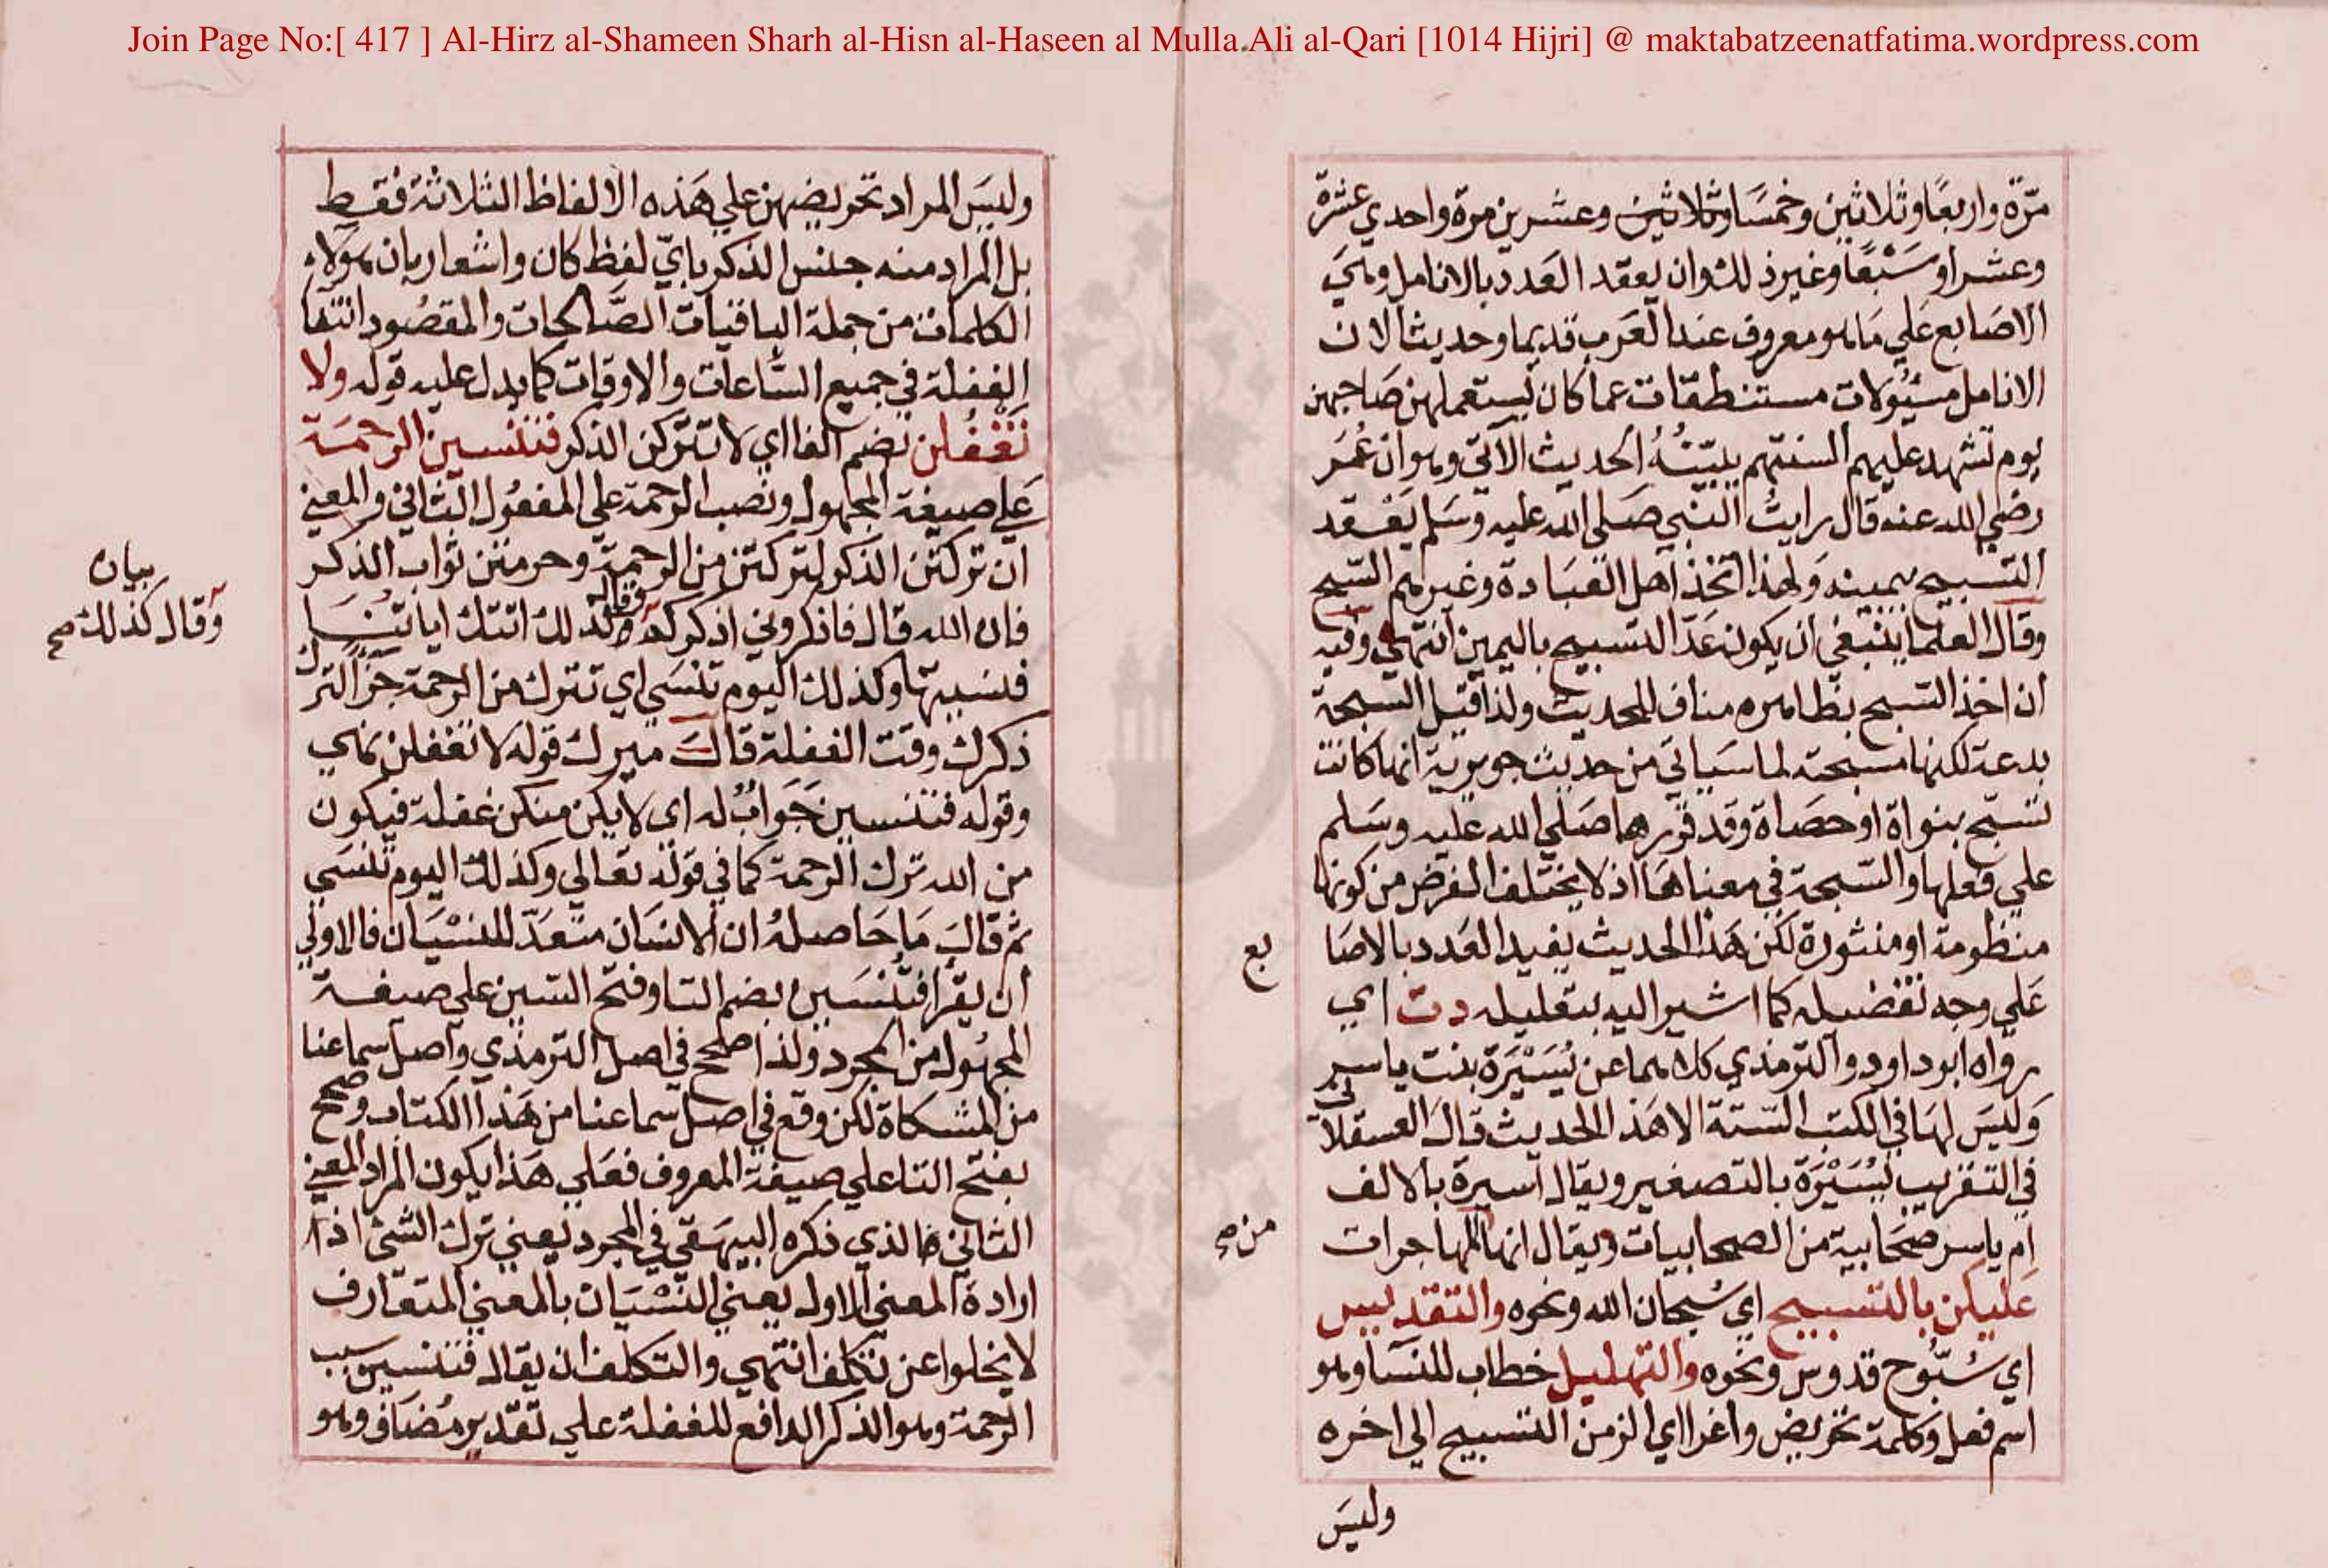 Join Page No:[ 417 ] Al-Hirz al-Shameen Sharh al-Hisn al-Haseen al Mulla Ali al-Qari [1014 Hijri] @ maktabatzeenatfatima.wordpress.com
مرّة واربعًا وثلاثين وخمسًا وثلاثين وعشرين مرة واحدي عشرة
وعشرا وسَبْعًا وغير ذلك وان يعقد العدد بالانامل وهي
الاصابع علي مَا هو معروف عند العرب قديما وحديثا لان
الانامل مسئولات مستنطقات عما كان يستعملهن صَاحبهن
يوم تشهد عليهم السنتهم يبيّنُهُ الحديث الآتي وهو ان عُمَر
رضي الله عنه قال رايتُ النبي صَلي الله عليه وسَلم يَعْقد
التسبيح بيمينه وَلهذا اتخذ اهل العبَادة وغيرهم التسبيح
وقال العلما ينبغي ان يكون عَدّ التسبيح باليمين انتهي وفيه
ان اخذ التسبيح بظاهره مناف للحديث ولذا قيل السبحة
بدعة لكنها مستحبة لما سَياتي من حديث جويرية انها كانت
تسَبّح بنواة او حصَاة وقد قررها صَلي الله عليه وسَلم
علي فعلها والسّبحة في معناهَا اذ لا يختلف الغرض من كونها
منظومة او منثورة لكن هَذا الحديث يفيد العَدد بالاصَا
بع
عَلي وجه تفضيله كما اشير اليه بتعليله دت اي
رواه ابو داود والترمذي كلاهما عن يُسَيْرَة بنت ياسر
وَليسَ لهَا في الكتب السّتة الا هَذا الحديث قال العسقلا
نى
في التقريب يُسَيْرَة بالتصغير ويقال اسيرة بالالف
ام ياسر صحَابية من الصحابيات ويقال انها المهاجرات
من صح
عَليكن بالتسبيح اي سُبحان الله ونحوه والتقديس
اي سُبّوح قدوس ونحوه والتهليل خطاب للنسَآ وهو
اسم فعل وكلمة تحريض واغرا اي الزمن التسبيح الي اخره
وليسَ
وليسَ المراد تحريضهن علي هَذه الالفاظ الثلاثة فقط
بل المراد منه جنس الذكر بايّ لفظ كان واشعار بان هؤلاء
الكلمات من جملة الباقيات الصَّالحات والمقصُود انتفا
الغفلة في جميع السّاعات والاوقات كما يدل عليه قوله ولا
تَغْفُلن بضم الفا اي لا تتركن الذكر فتنسين الرحمَة
عَلي صيغة المجهول ونصب الرحمة علي المفعُول الثاني والمعني
ان تركتن الذكر لتركتن من الرحمة وحرمتن ثواب الذكر
فان الله قال فاذكروني اذكركم وكذلك اتتك اياتنَا
بيان
وقال كذلك صح
فنسيتها وكذلك اليوم تنسَي اي تترك من الرحمة جَزَآ لترك
ذكرك وقت الغفلة قالَ ميرك قوله لا تغفلن نهي
وقوله فتنسين جَوَابٌ له اي لا يكن منكن غفلة فيكون
من الله ترك الرحمة كما في قوله تعالي وكذلك اليوم تنسَي
ثم قالَ مَا حَاصله ان الانسَان متعَدّ للنسْيَان فالاولي
ان يقرا فتُنْسَين بضم التا وفتح السّين علي صيغة
المجهُول من المجرد ولذا صُحح في اصل الترمذي واصل سماعنا
من المشكاة لكن وقع في اصل سماعنا من هَذا الكتاب وصحح
بفتح التا علي صيغة المعروف فعَلي هَذا يكون المراد المعني
الثاني الذي ذكره البيهَقي في المجرد يعني ترك الشئ اذ
ارادة المعني الاول يعني النسْيَان بالمعني المتعَارف
لا يخلوا عن تكلف انتهي والتكلف ان يقال فتنسين سبب
الرحمة وهو الذكر الدافع للغفلة علي تقدير مُضَاف وهو